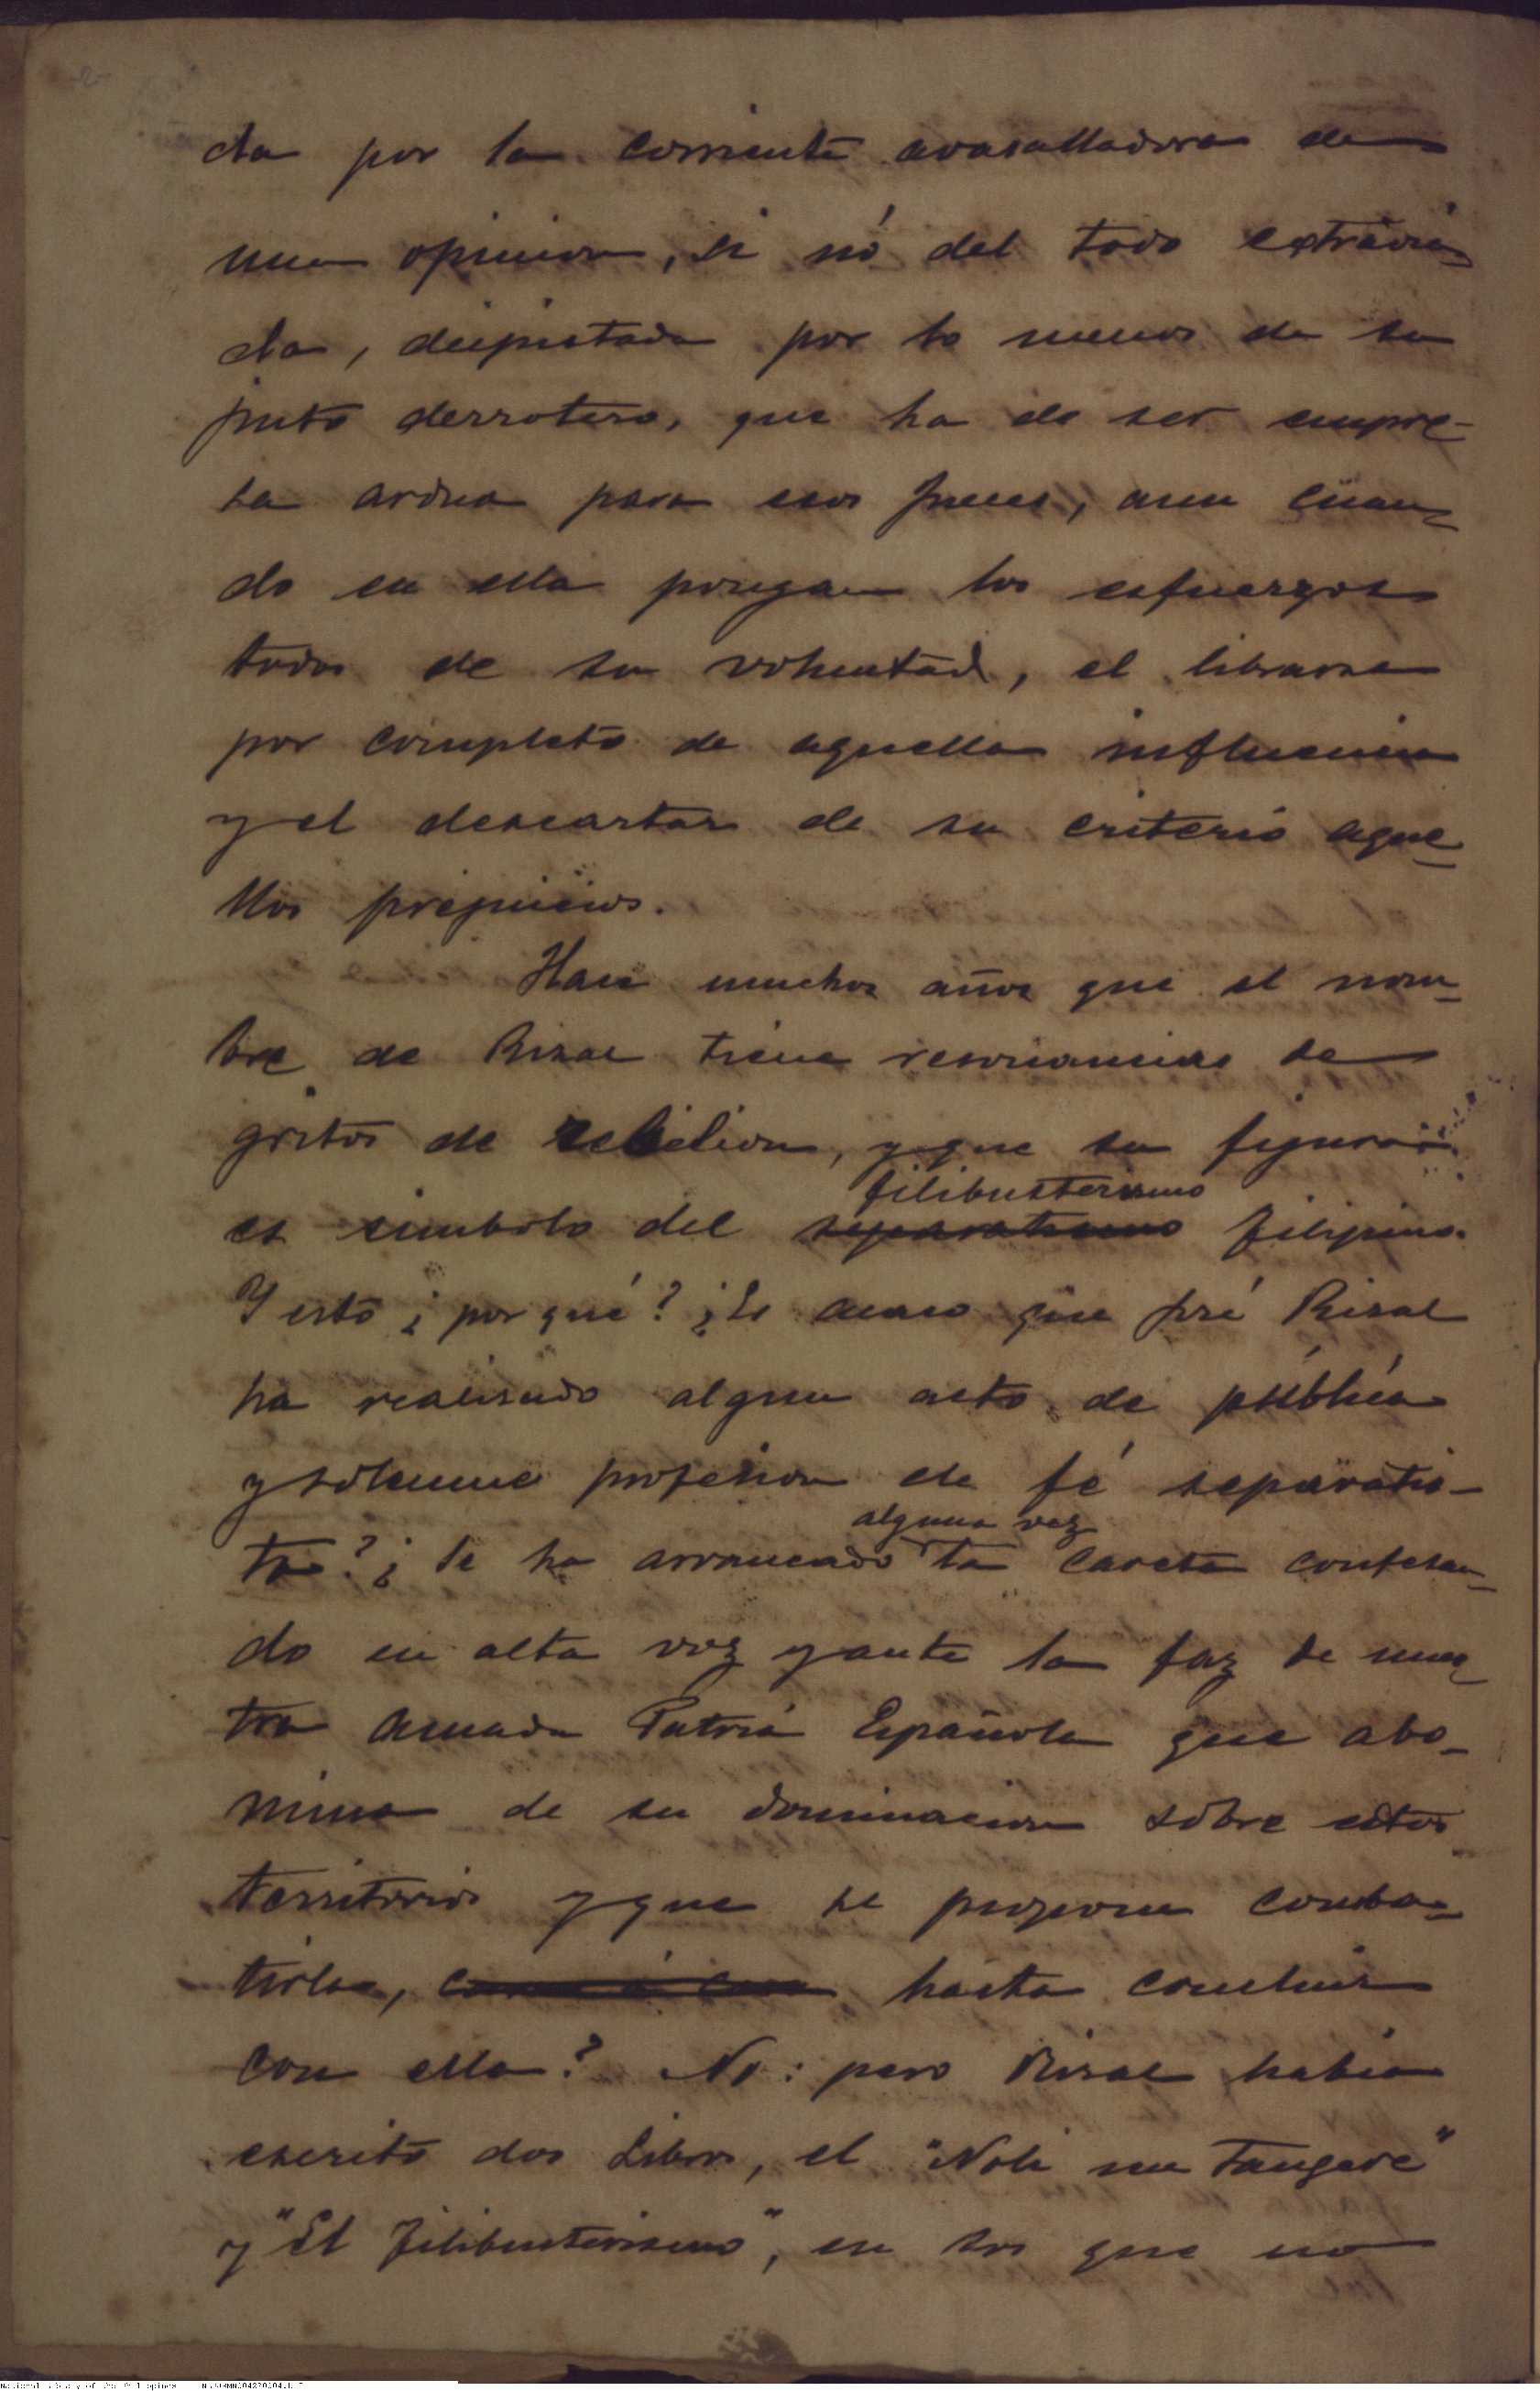 da por la corriente avasalladora de
una opinion, si nó del todo extravia-
da, despistada por lo menos de su
justo derrotero, que ha de ser empre-
sa ardua para esos Jueces, aun cuan-
do en ella pongan los esfuerzos
todos de su voluntad, el librarse
por completo de aquella influencia
y el descartar de su criterio aque-
llos prejuicios.
Hace muchos años que el nom-
bre de Rizal tiene resonancias de
gritos de rebelion, y que su figura
filibusterismo
es simbolo del separatismo filipino.
Y esto ¿por qué? ¿Es acaso que José Rizal
ha realizado algun acto de pública
y solemne profesion de fé separatis-
alguna vez
ta? ¿Se ha arrancado la careta confesan-
do en alta voz y ante la faz de nues-
tra amada Patria Española que abo-
mina de su dominacion sobre estos
territorios y que se propone comba-
tirla, cara á cara hasta concluir
con ella? No: pero Rizal habia
escrito dos Libros, el "Noli me Tangere"
y "El Filibusterismo", en los que no
National Library of the Philippines